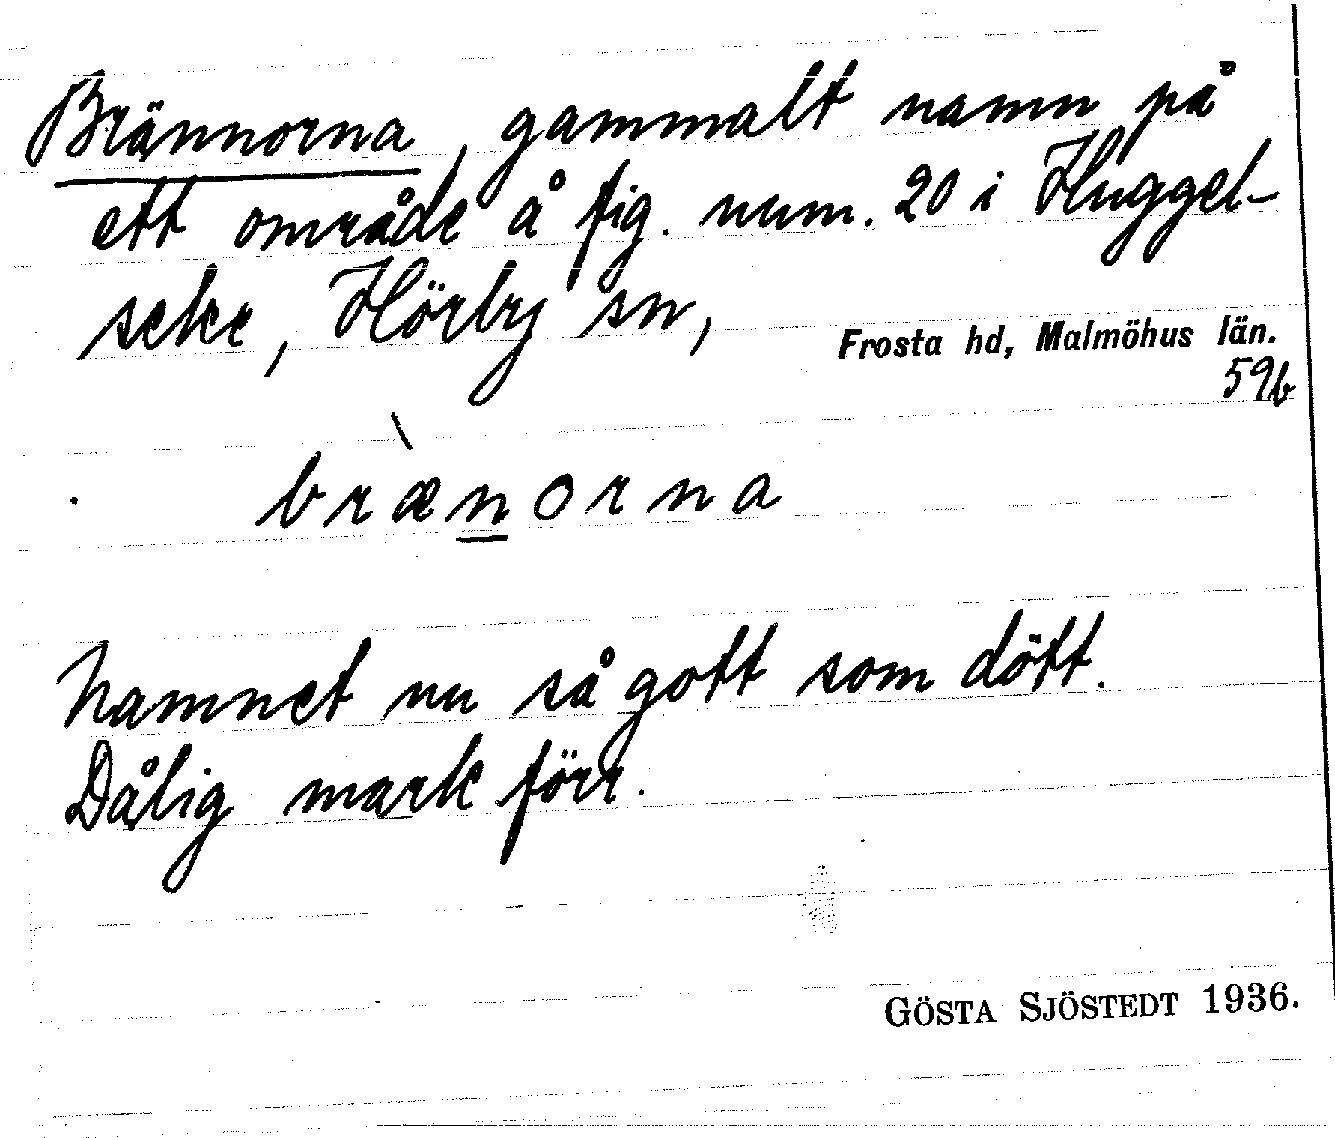 Brännorna, gammalt namn på
ett område å fig. num. 20 i Huggel-
seke, Hörby sn,
Frosta hd, Malmöhus län.
59b
brænorna
Namnet nu så gott som dött.
Dålig mark förr.
GÖSTA SJÖSTEDT 1936.